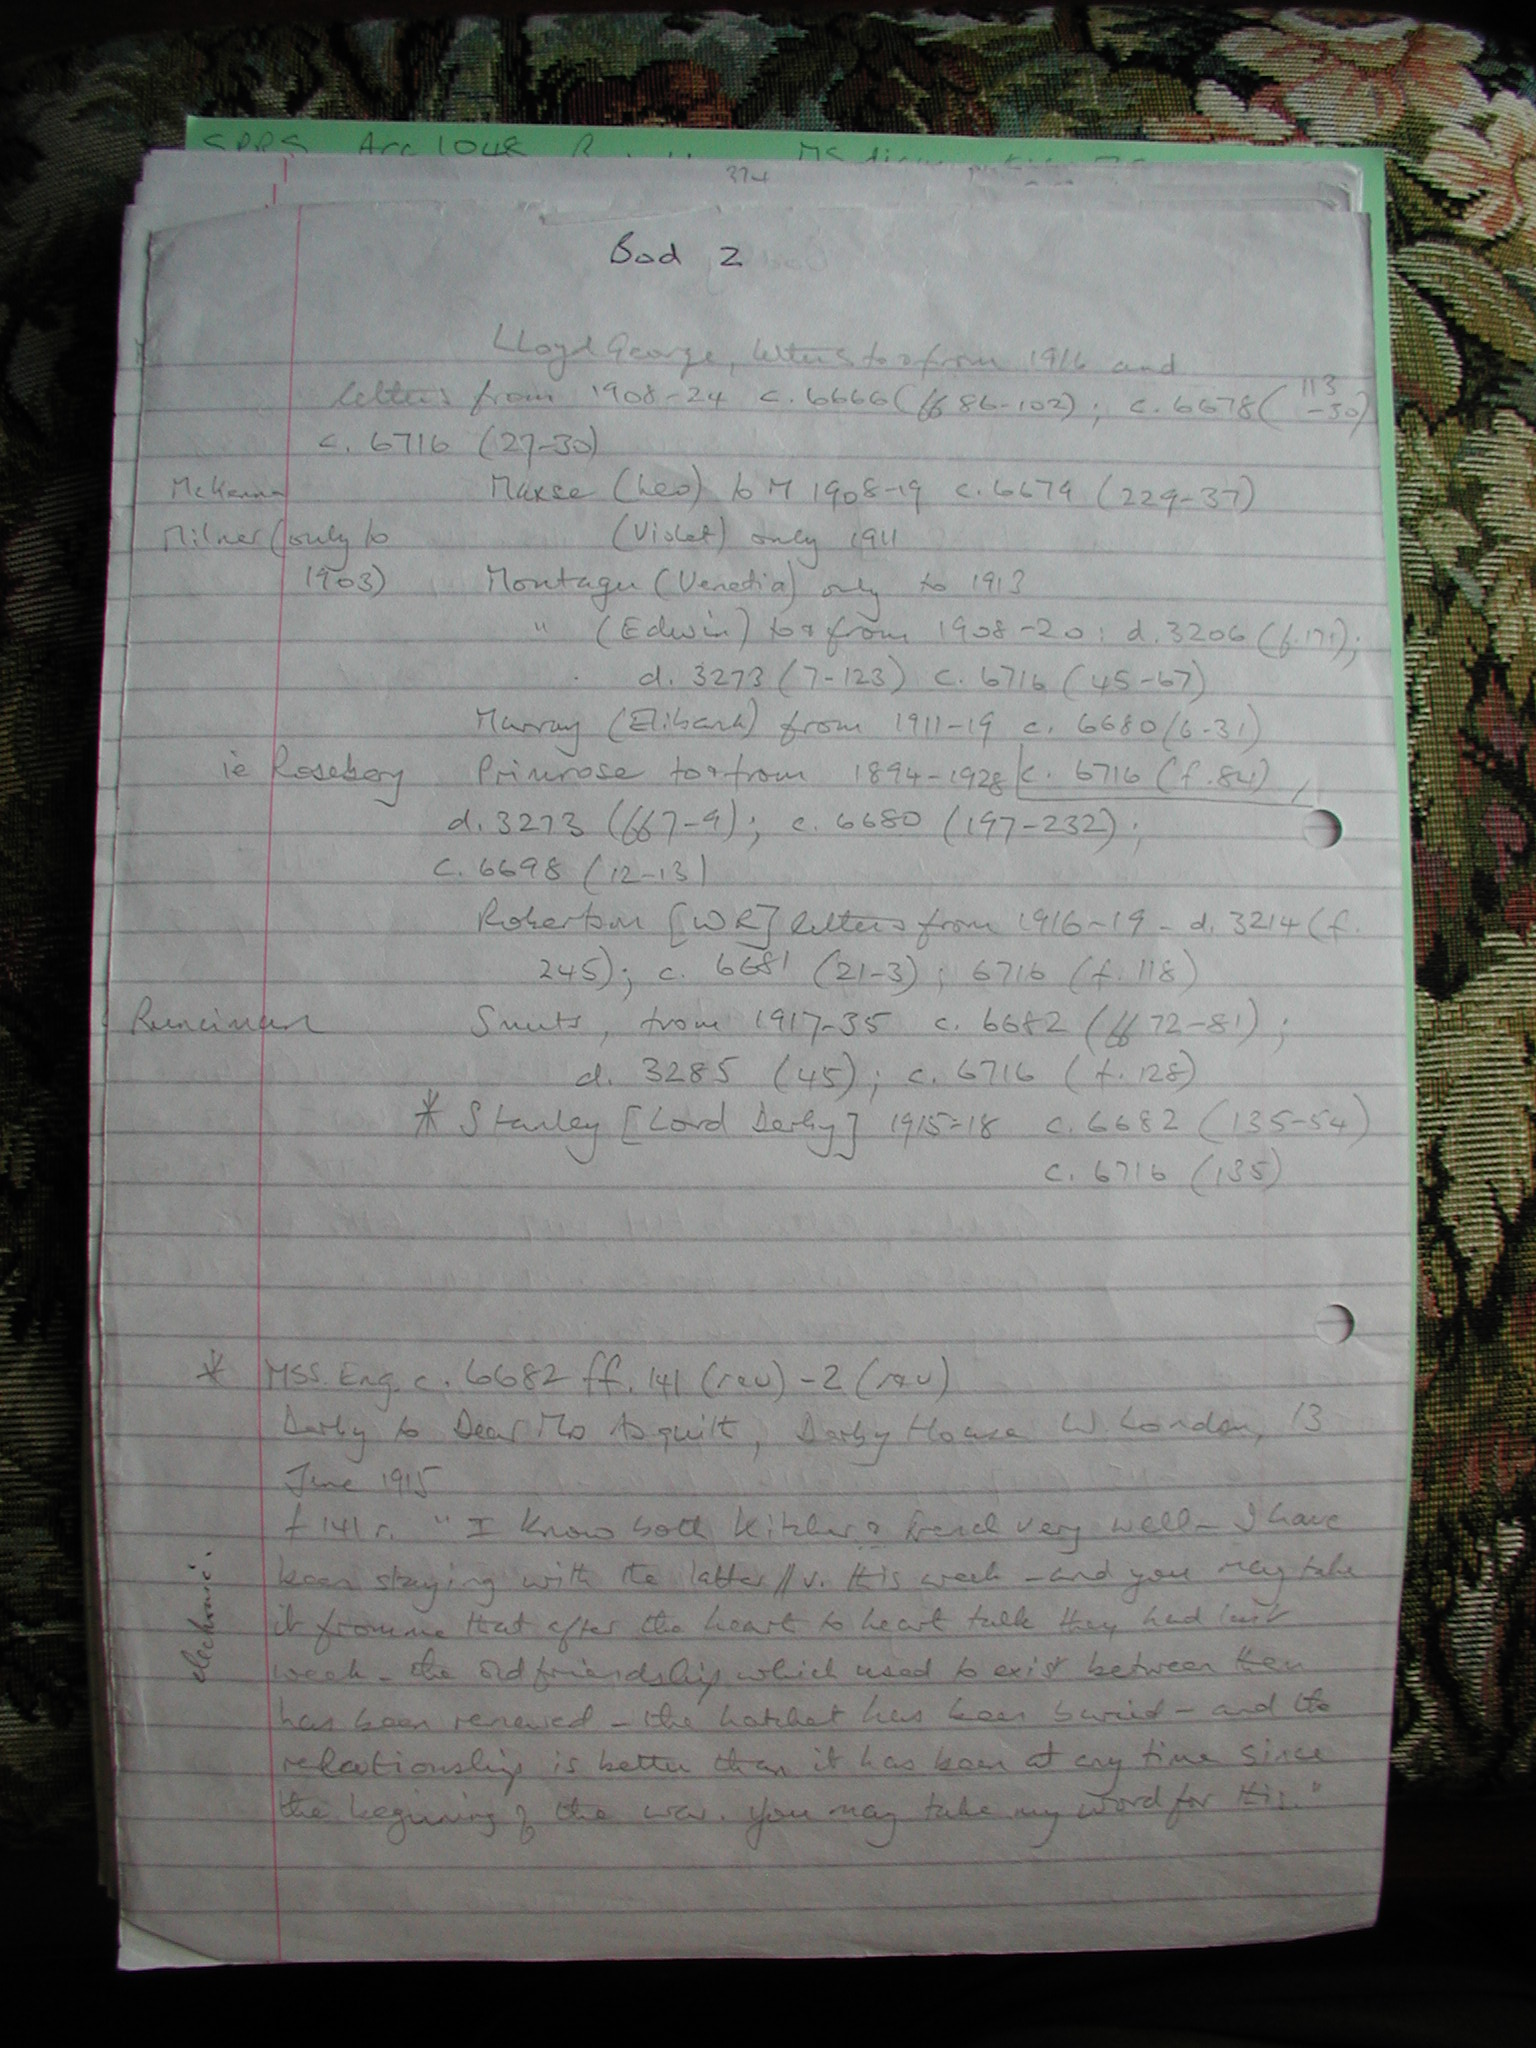 SPPS Acc 1048
374
Bod 2
Lloyd George, letters to & from 1916 and
letters from 1908-24 c. 6666 (ff 86-102); c. 6678 (113
-30)
c. 6716 (27-30)
McKenna Maxse (Leo) to M 1908-19 c. 6679 (229-37)
Milner (only to (Violet) only 1911
1903) Montagu (Venetia) only to 1913
" (Edwin) to & from 1908-20: d. 3206 (f. 171);
d. 3273 (7-123) c. 6716 (45-67)
Murray (Elibank) from 1911-19 c. 6680 (6-31)
ie Rosebery Primrose to & from 1894-1928 c. 6716 (f. 84),
d. 3273 (ff 7-9); c. 6680 (197-232);
c. 6698 (12-13)
Robertson [WR] letters from 1916-19 - d. 3214 (f.
245); c. 6681 (21-3); 6716 (f. 118)
Runciman Smuts, from 1917-35 c. 6682 (ff 72-81);
d. 3285 (45); c. 6716 (f. 128)
* Stanley [Lord Derby] 1915-18 c. 6682 (135-54)
c. 6716 (135)
* MSS. Eng. c. 6682 ff. 141 (r & v) - 2 (r & v)
Derby to Dear Mrs Asquith, Derby House W. London, 13
June 1915
f 141 r. "I know both Kitchener & French very well - I have
been staying with the latter // v. this week - and you may take
it from me that after the heart to heart talk they had last
week - the old friendship which used to exist between them
has been renewed - the hatchet has been buried - and the
relationship is better than it has been at any time since
the beginning of the war. You may take my word for this."
electronic: